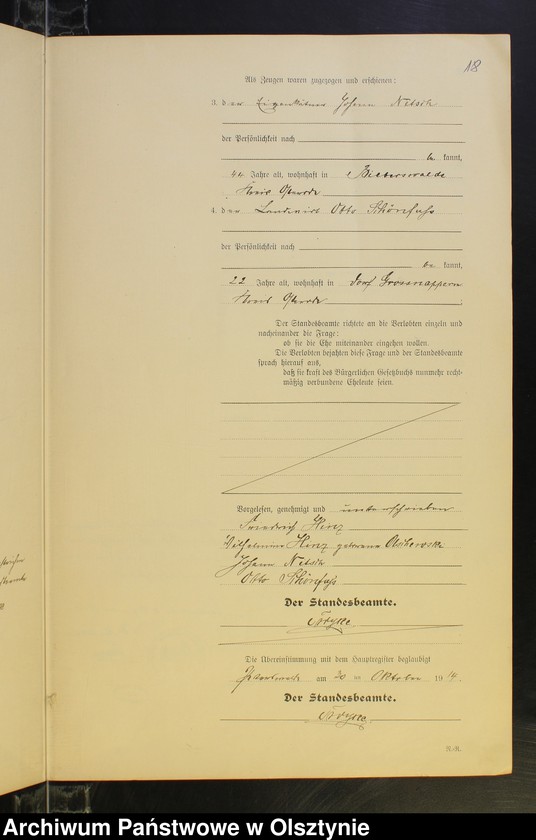 18
Als Zeugen waren zugezogen und erschienen:
3. der Eigenkätner Johann Netsch
der Persönlichkeit nach
be kannt,
44 Jahre alt, wohnhaft in Bieberswalde
Kreis Osterode
4. der Landwirt Otto Schönfuss
der Persönlichkeit nach
be kannt,
22 Jahre alt, wohnhaft in Dorf Grossnappern
Kreis Osterode
Der Standesbeamte richtete an die Verlobten einzeln und
nacheinander die Frage:
ob sie die Ehe miteinander eingehen wollen.
Die Verlobten bejahten diese Frage und der Standesbeamte
sprach hierauf aus,
daß sie kraft des Bürgerlichen Gesetzbuchs nunmehr recht-
mäßig verbundene Eheleute seien.
Vorgelesen, genehmigt und unterschrieben
Friedrich Hinz
Wilhelmine Hinz geborene
Johann Netsch
Otto Schönfuss
Der Standesbeamte.
Die Übereinstimmung mit dem Hauptregister beglaubigt
am 20 ten Oktober 1914.
Der Standesbeamte.
R.-R.
Archiwum Państwowe w Olsztynie